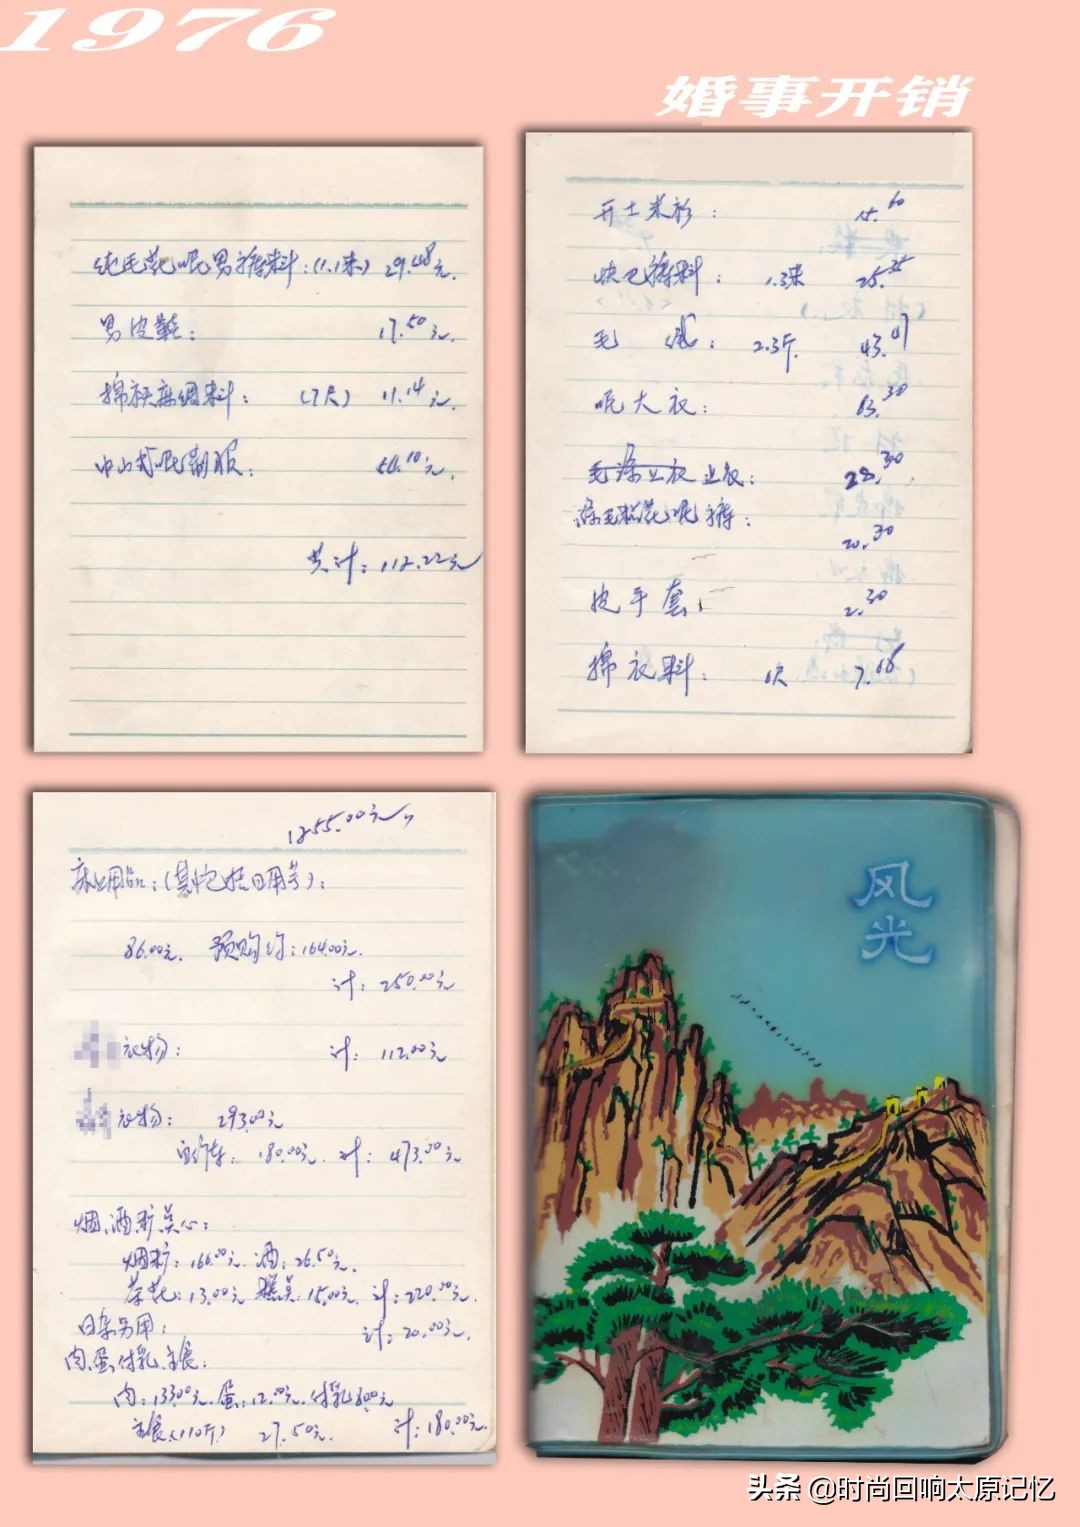 1976
婚事开销
纯毛花呢男裤料：(1.1米) 29.48元.
男皮鞋： 17.50元.
棉袄麻绸料： (7尺) 11.14元.
中山式呢制服： 54.10元.
共计：112.22元
开士米衫： 15.60
快巴裤料： 1.3米 25.35
毛 线： 2.3斤. 43.47
呢大衣： 63.30
上衣： 28.30
涤毛粘花呢裤：
20.30
皮手套： 2.30
棉衣料： 6尺 7.68
1255.00元
床上用品：(其中包括日用等)：
86.00元. 预购约：164.00元.
计：250.00元
衣物： 计：112.00元
衣物： 293.00元
自行车：180.00元. 计：473.00元
烟、酒、茶点心：
烟：166.00元. 酒：26.50元.
茶花：13.00元 糕点：15.00元. 计：220.00元.
日杂另用： 计：20.00元.
肉、蛋、付乳、主食：
肉：133.00元. 蛋：12.00元. 付乳8.00元
主食（110斤） 27.50元. 计：180.00元.
风光
头条 @时尚回响太原记忆